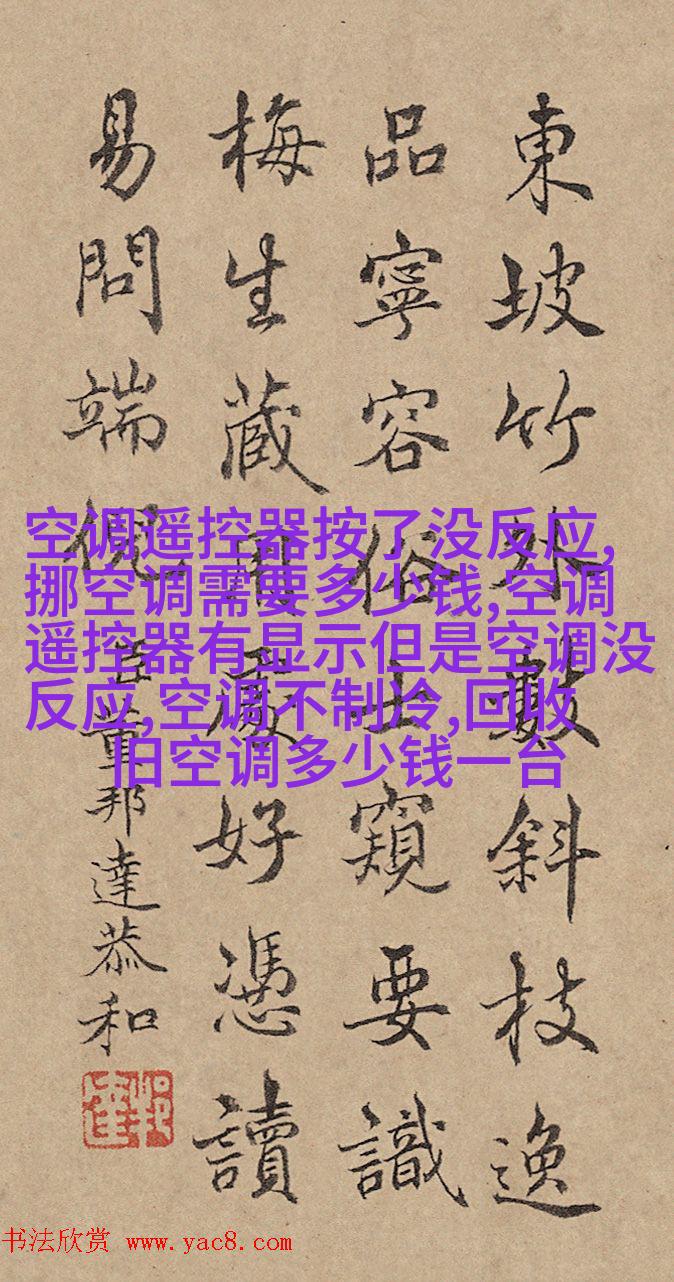 東坡竹外數斜枝逸
品寧容俗士窺要識
梅生藏用處好憑讀
易問端倪
臣董邦達恭和
空调遥控器按了没反应,
挪空调需要多少钱,空调
遥控器有显示但是空调没
反应,空调不制冷,回收
旧空调多少钱一台
书法欣赏 www.yac8.com